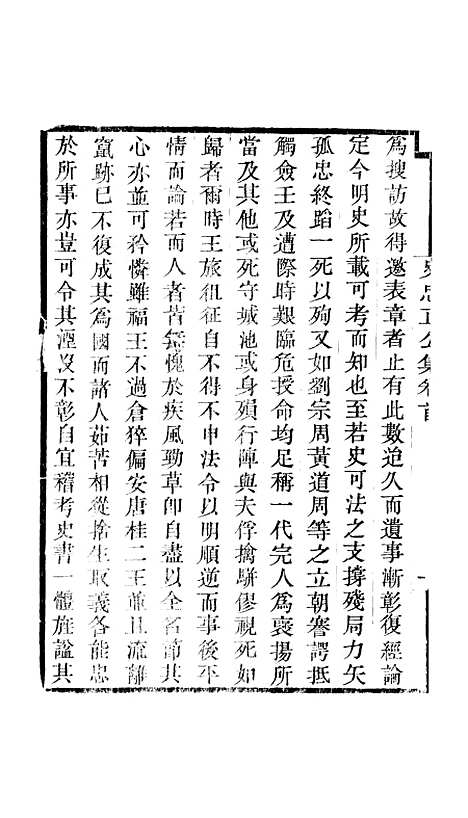 史忠正公集卷首
一
爲搜訪故得邀表章者止有此數迨久而遺事漸彰復經論
定今明史所載可考而知也至若史可法之支撐殘局力矢
孤忠終蹈一死以殉又如劉宗周黃道周等之立朝謇諤抵
觸僉壬及遭際時艱臨危授命均足稱一代完人爲褒揚所
當及其他或死守城池或身殞行陣與夫俘擒駢僇視死如
歸者爾時王旅徂征自不得不申法令以明順逆而事後平
情而論若而人者皆無愧於疾風勁草卽自盡以全名節其
心亦並可矜憐雖福王不過倉猝偏安唐桂二王並且流離
竄跡已不復成其爲國而諸人茹苦相從捨生取義各能忠
於所事亦豈可令其湮沒不彰自宜稽考史書一體旌諡其